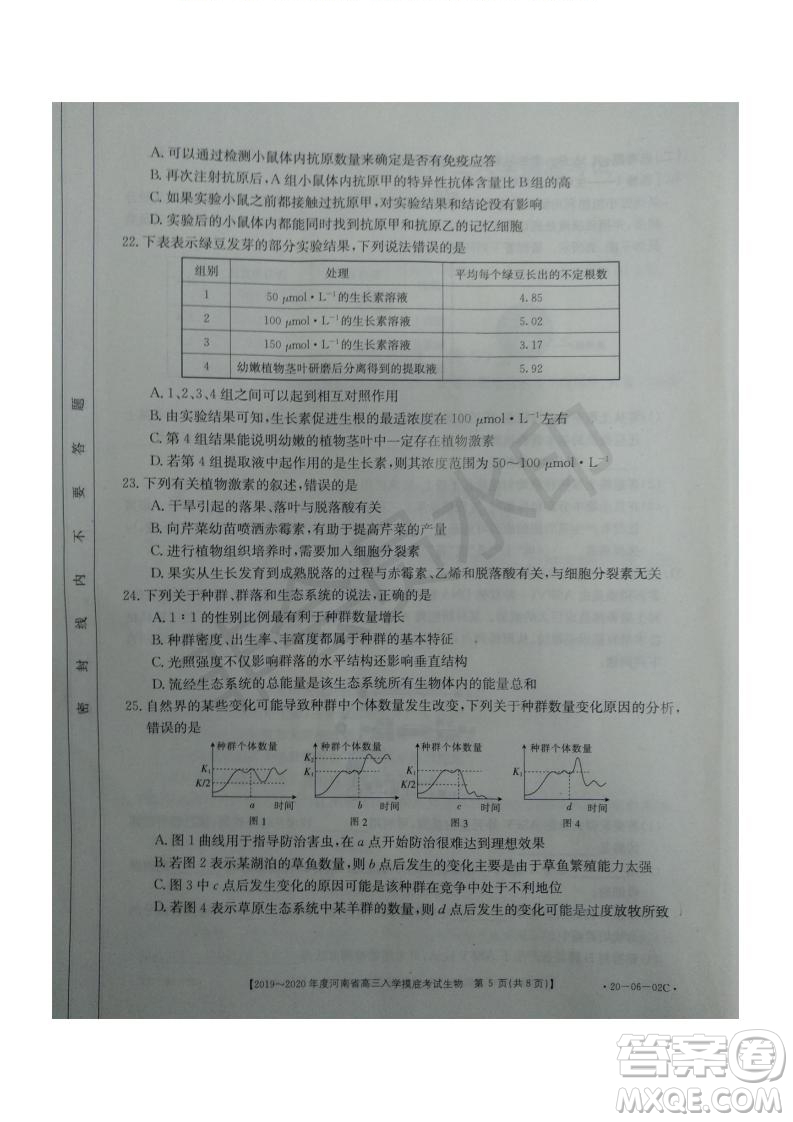 A. 可以通过检测小鼠体内抗原数量来确定是否有免疫应答
B. 再次注射抗原后，A 组小鼠抗原甲的特异性抗体含量比 B 组的高
C. 如果实验小鼠之前都接触过抗原甲，对实验结果和结论没有影响
D. 实验后的小鼠体内都能同时找到抗原甲和抗原乙的记忆细胞
22. 下表表示绿豆发芽的部分实验结果，下列说法错误的是
组别 处理 平均每个绿豆长出的不定根数
1 50 μmol·L⁻¹的生长素溶液 4.85
2 100 μmol·L⁻¹的生长素溶液 5.02
3 150 μmol·L⁻¹的生长素溶液 3.17
4 幼嫩植物茎叶研磨后分离得到的提取液 5.92
A. 1、2、3、4 组之间可以起到相互对照作用
B. 由实验结果可知，生长素促进生根的最适浓度在 100 μmol·L⁻¹左右
C. 第 4 组结果能说明幼嫩的植物茎叶中一定存在植物激素
D. 若第 4 组提取液中起作用的是生长素，则其浓度范围为 50～100 μmol·L⁻¹
23. 下列有关植物激素的叙述，错误的是
A. 干旱引起的落果、落叶与脱落酸有关
B. 向芹菜幼苗喷洒赤霉素，有助于提高芹菜的产量
C. 进行植物组织培养时，需要加入细胞分裂素
D. 果实从生长发育到成熟脱落的过程与赤霉素、乙烯和脱落酸有关，与细胞分裂素无关
24. 下列关于种群、群落和生态系统的说法，正确的是
A. 1∶1 的性别比例最有利于种群数量增长
B. 种群密度、出生率、丰富度都属于种群的基本特征
C. 光照强度不仅影响群落的水平结构还影响垂直结构
D. 流经生态系统的总能量是该生态系统所有生物体内的能量总和
25. 自然界的某些变化可能导致种群中个体数量发生改变，下列关于种群数量变化原因的分析，
错误的是
种群个体数量 种群个体数量 种群个体数量 种群个体数量
K₁ K/2 a 时间
K₂ K₁ b 时间
K₁ K/2 c 时间
K₁ K/2 d 时间
图 1 图 2 图 3 图 4
A. 图 1 曲线用于指导防治害虫，在 a 点开始防治很难达到理想效果
B. 若图 2 表示某湖泊的草鱼数量，则 b 点后发生的变化主要是由于草鱼繁殖能力太强
C. 图 3 中 c 点后发生变化的原因可能是该种群在竞争中处于不利地位
D. 若图 4 表示草原生态系统中某羊群的数量，则 d 点后发生的变化可能是过度放牧所致
【2019～2020 年度河南省高三入学摸底考试生物 第 5 页(共 8 页)】
·20-06-02C·
密封线内不要答题
答案圈
MXQE.COM